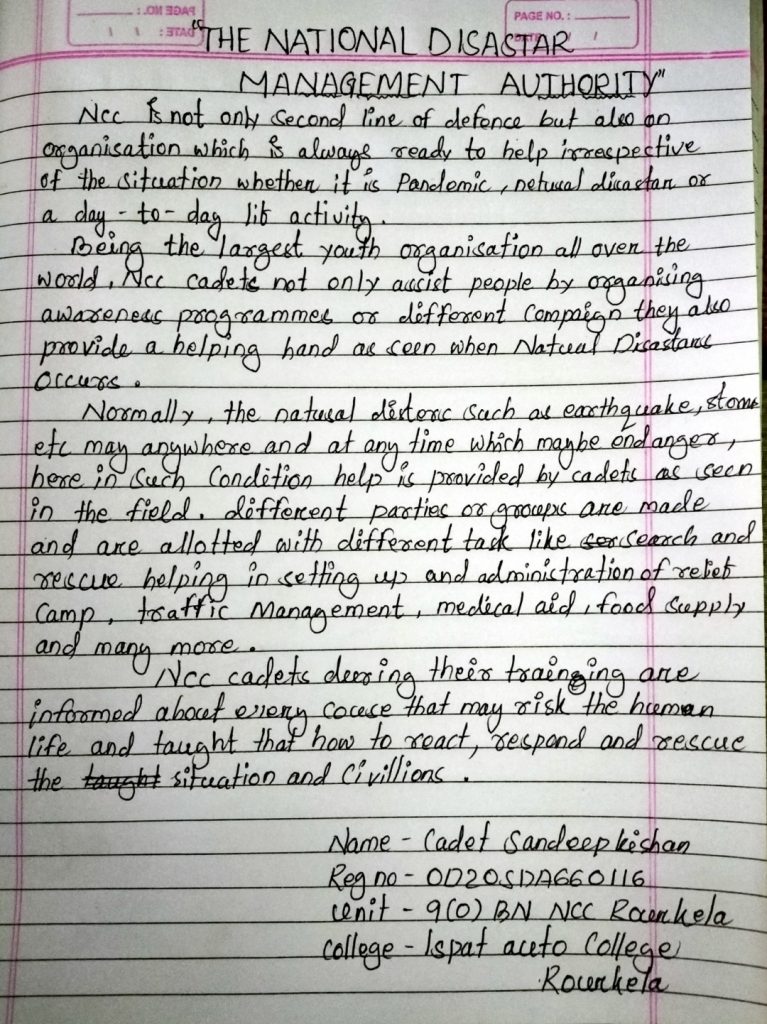 PAGE NO.:
DATE:
PAGE NO.:
"THE NATIONAL DISASTAR
MANAGEMENT AUTHORITY"
Ncc is not only second line of defence but also an
organisation which is always ready to help irrespective
of the situation whether it is Pandemic, netural dicastar or
a day-to-day lib activity.
Being the largest youth organisation all over the
world, Ncc cadets not only assist people by organising
awareness programmes or different Compaign they also
provide a helping hand as seen when Natual Disastars
Occurs.
Normally, the natural disters such as earthquake, stoms
etc may anywhere and at any time which maybe endanger,
here in such Condition help is provided by cadets as seen
in the field. different parties or groups are made
and are allotted with different task like search and
rescue helping in setting up and administration of relief
Camp, traffic Management, medical aid, food supply
and many more.
Ncc cadets during their training are
informed about every couse that may risk the human
life and taught that how to react, respond and rescue
the taught situation and Civillions.
Name - Cadet Sandeep kishan
Reg no - OD20SDA660116
Unit - 9(O) BN NCC Rourkela
College - Ispat auto College
Rourkela